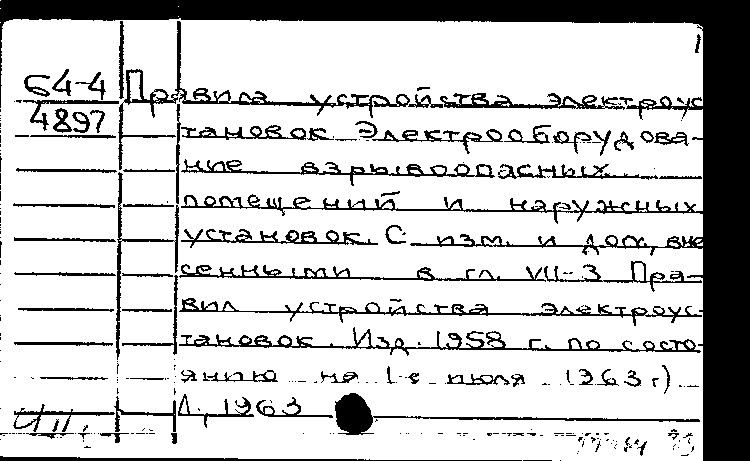 1
64-4 Правила устройства электроус
4897 тановок. Электрооборудова-
ние взрывоопасных
помещений и наружных
установок. С изм. и доп., вне
сенными в гл. VII-3 Пра-
вил устройства электроус-
тановок. Изд. 1958 г. по состо-
янию на 1-е июля 1963 г)
Л., 1963